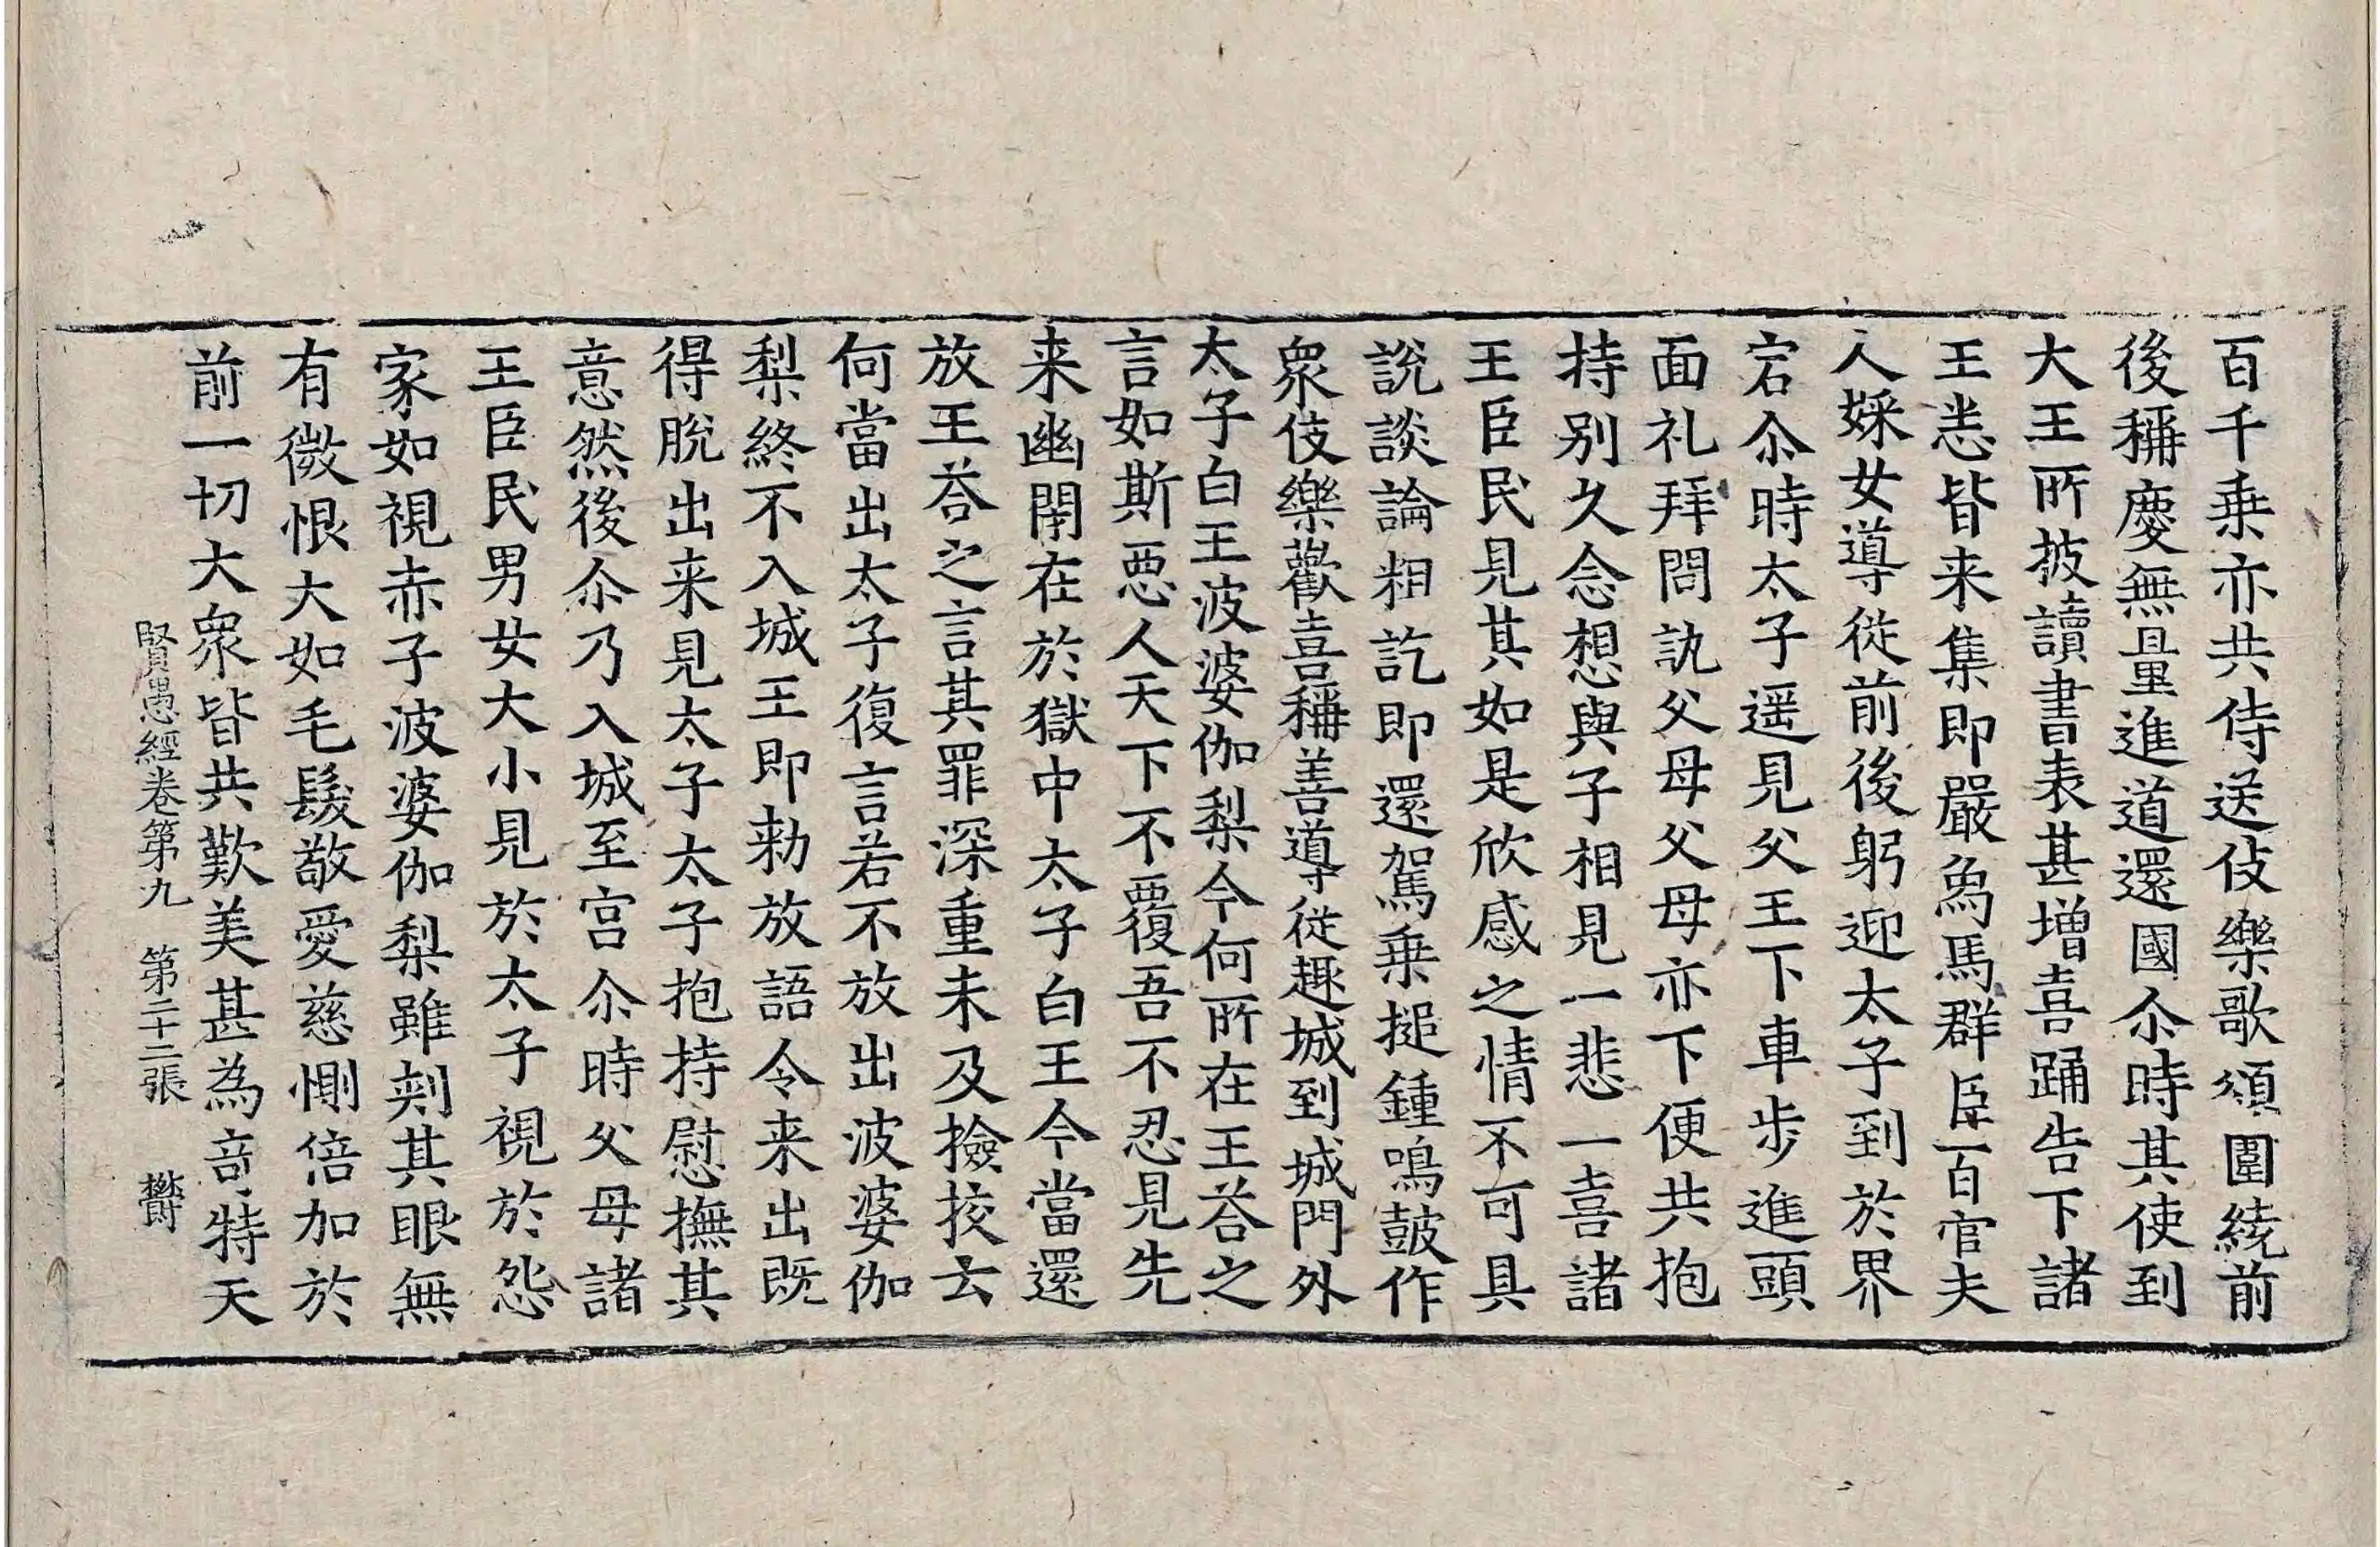 百千乗亦共侍送伎樂歌頌圍繞前
後稱慶無量進道還國尒時其使到
大王所披讀書表甚増喜踊告下諸
王悉皆来集即嚴象馬群臣百官夫
人婇女導從前後躬迎太子到於界
宕尒時太子遥見父王下車步進頭
面礼拜問訊父母父母亦下便共抱
持別久念想與子相見一悲一喜諸
王臣民見其如是欣感之情不可具
說談論粗訖即還駕乗搥鍾鳴鼓作
衆伎樂歡喜稱善導從趣城到城門外
太子白王波婆伽梨今何所在王荅之
言如斯惡人天下不覆吾不忍見先
来幽閇在於獄中太子白王今當還
放王荅之言其罪深重未及撿挍云
何當出太子復言若不放出波婆伽
梨終不入城王即勑放語令来出既
得脫出来見太子太子抱持慰撫其
意然後尒乃入城至宮尒時父母諸
王臣民男女大小見於太子視於怨
家如視赤子波婆伽梨雖刾其眼無
有微恨大如毛髮敬愛慈惻倍加於
前一切大衆皆共歎美甚為竒特天
賢愚經卷第九 第二十二張 欝